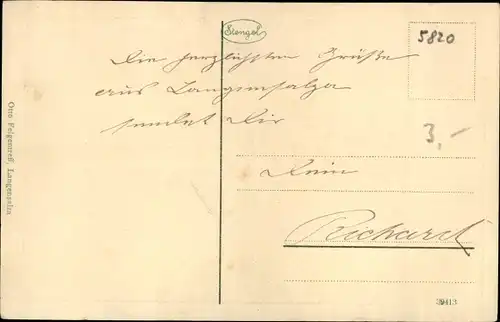 Stengel
5820
Die herzlichsten Grüße
aus Langensalza
sendet Dir
3,-
Dein
Richard
Otto Felgentreff, Langensalza
39413